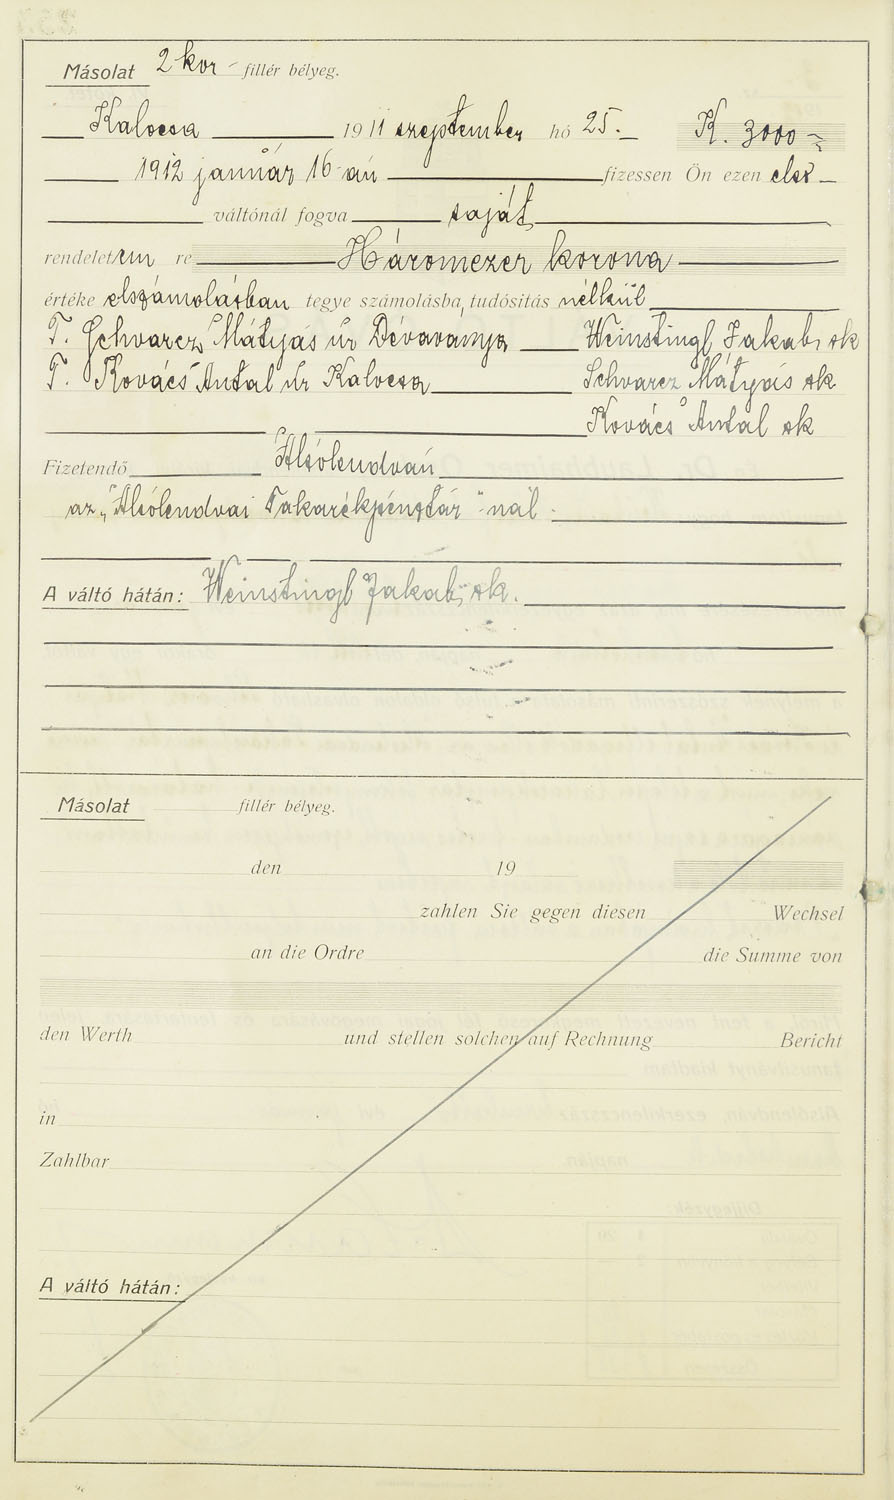 Másolat 2 kor - fillér bélyeg.
Kalocsa 1911 szeptember hó 25. K. 3000
1912 január 16-án fizessen Ön ezen első
váltónál fogva saját
rendeletem re Háromezer korona
értéke elszámolásban tegye számolásba, tudósítás nélkül
T. Schwarcz Mátyás úr Dévaványa Weinstingl Jakab, sk
T. Kovács Antal úr Kalocsa Schvarcz Mátyás sk
Kovács Antal sk
Fizetendő Alsólendván
az „Alsólendvai Takarékpénztár"-nál.
A váltó hátán: Weinstingl Jakab, sk.
Másolat fillér bélyeg.
den 19
zahlen Sie gegen diesen Wechsel
an die Ordre die Summe von
den Werth und stellen solchen auf Rechnung Bericht
in
Zahlbar
A váltó hátán: